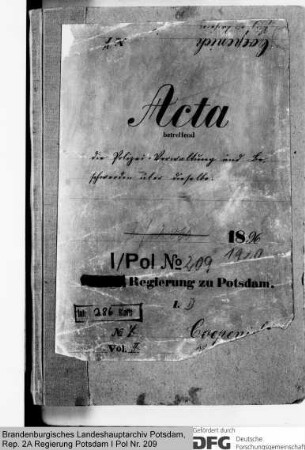 Coepenick
Acta
betreffend
die Polizei-Verwaltung und Be-
schwerden über dieselbe.
1896
1920
I/Pol № 209
Regierung zu Potsdam.
I. D
286
№ 7
Coepenick
Vol. II
Brandenburgisches Landeshauptarchiv Potsdam,
Rep. 2A Regierung Potsdam I Pol Nr. 209
Gefördert durch
DFG Deutsche
Forschungsgemeinschaft